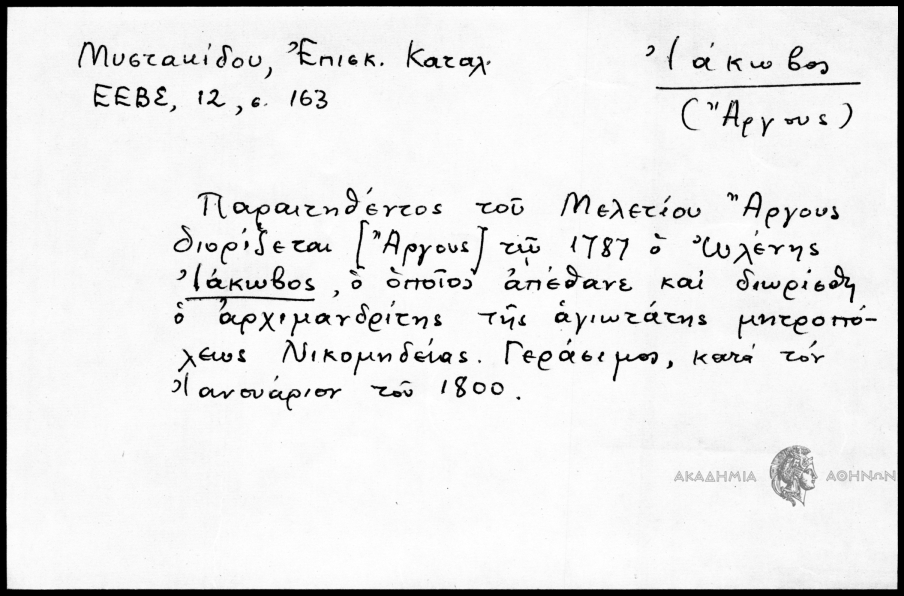 Μυστακίδου, Ἐπισκ. Καταλ.
ΕΕΒΣ, 12, σ. 163
Ἰάκωβος
(Ἄργους)
Παραιτηθέντος τοῦ Μελετίου Ἄργους
διορίζεται [Ἄργους] τῷ 1787 ὁ Ὠλένης
Ἰάκωβος, ὁ ὁποῖος ἀπέθανε καὶ διωρίσθη
ὁ ἀρχιμανδρίτης τῆς ἁγιωτάτης μητροπό-
λεως Νικομηδείας. Γεράσιμος, κατὰ τὸν
Ἰανουάριον τοῦ 1800.
ΑΚΑΔΗΜΙΑ ΑΘΗΝΩΝ